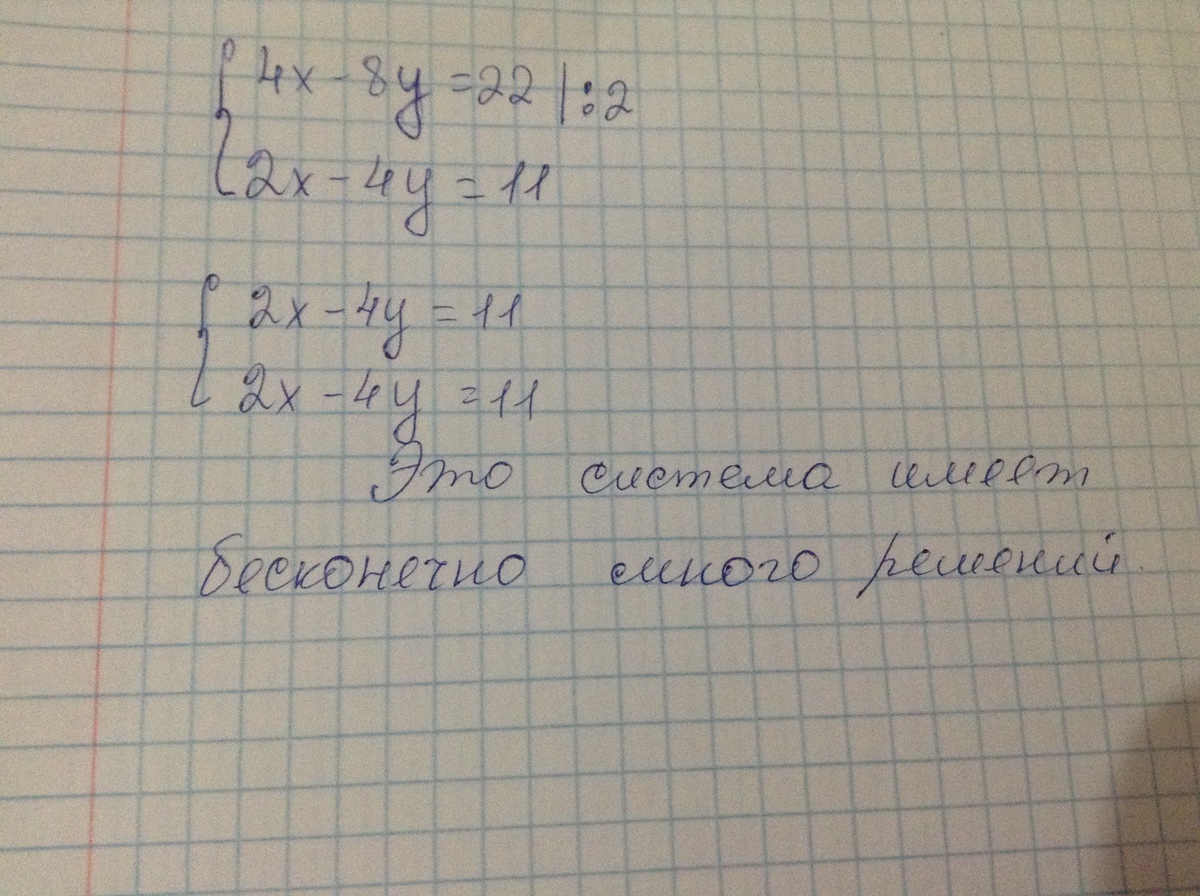 4x - 8y = 22 | : 2
2x - 4y = 11
2x - 4y = 11
2x - 4y = 11
Это система имеет
бесконечно много решений.